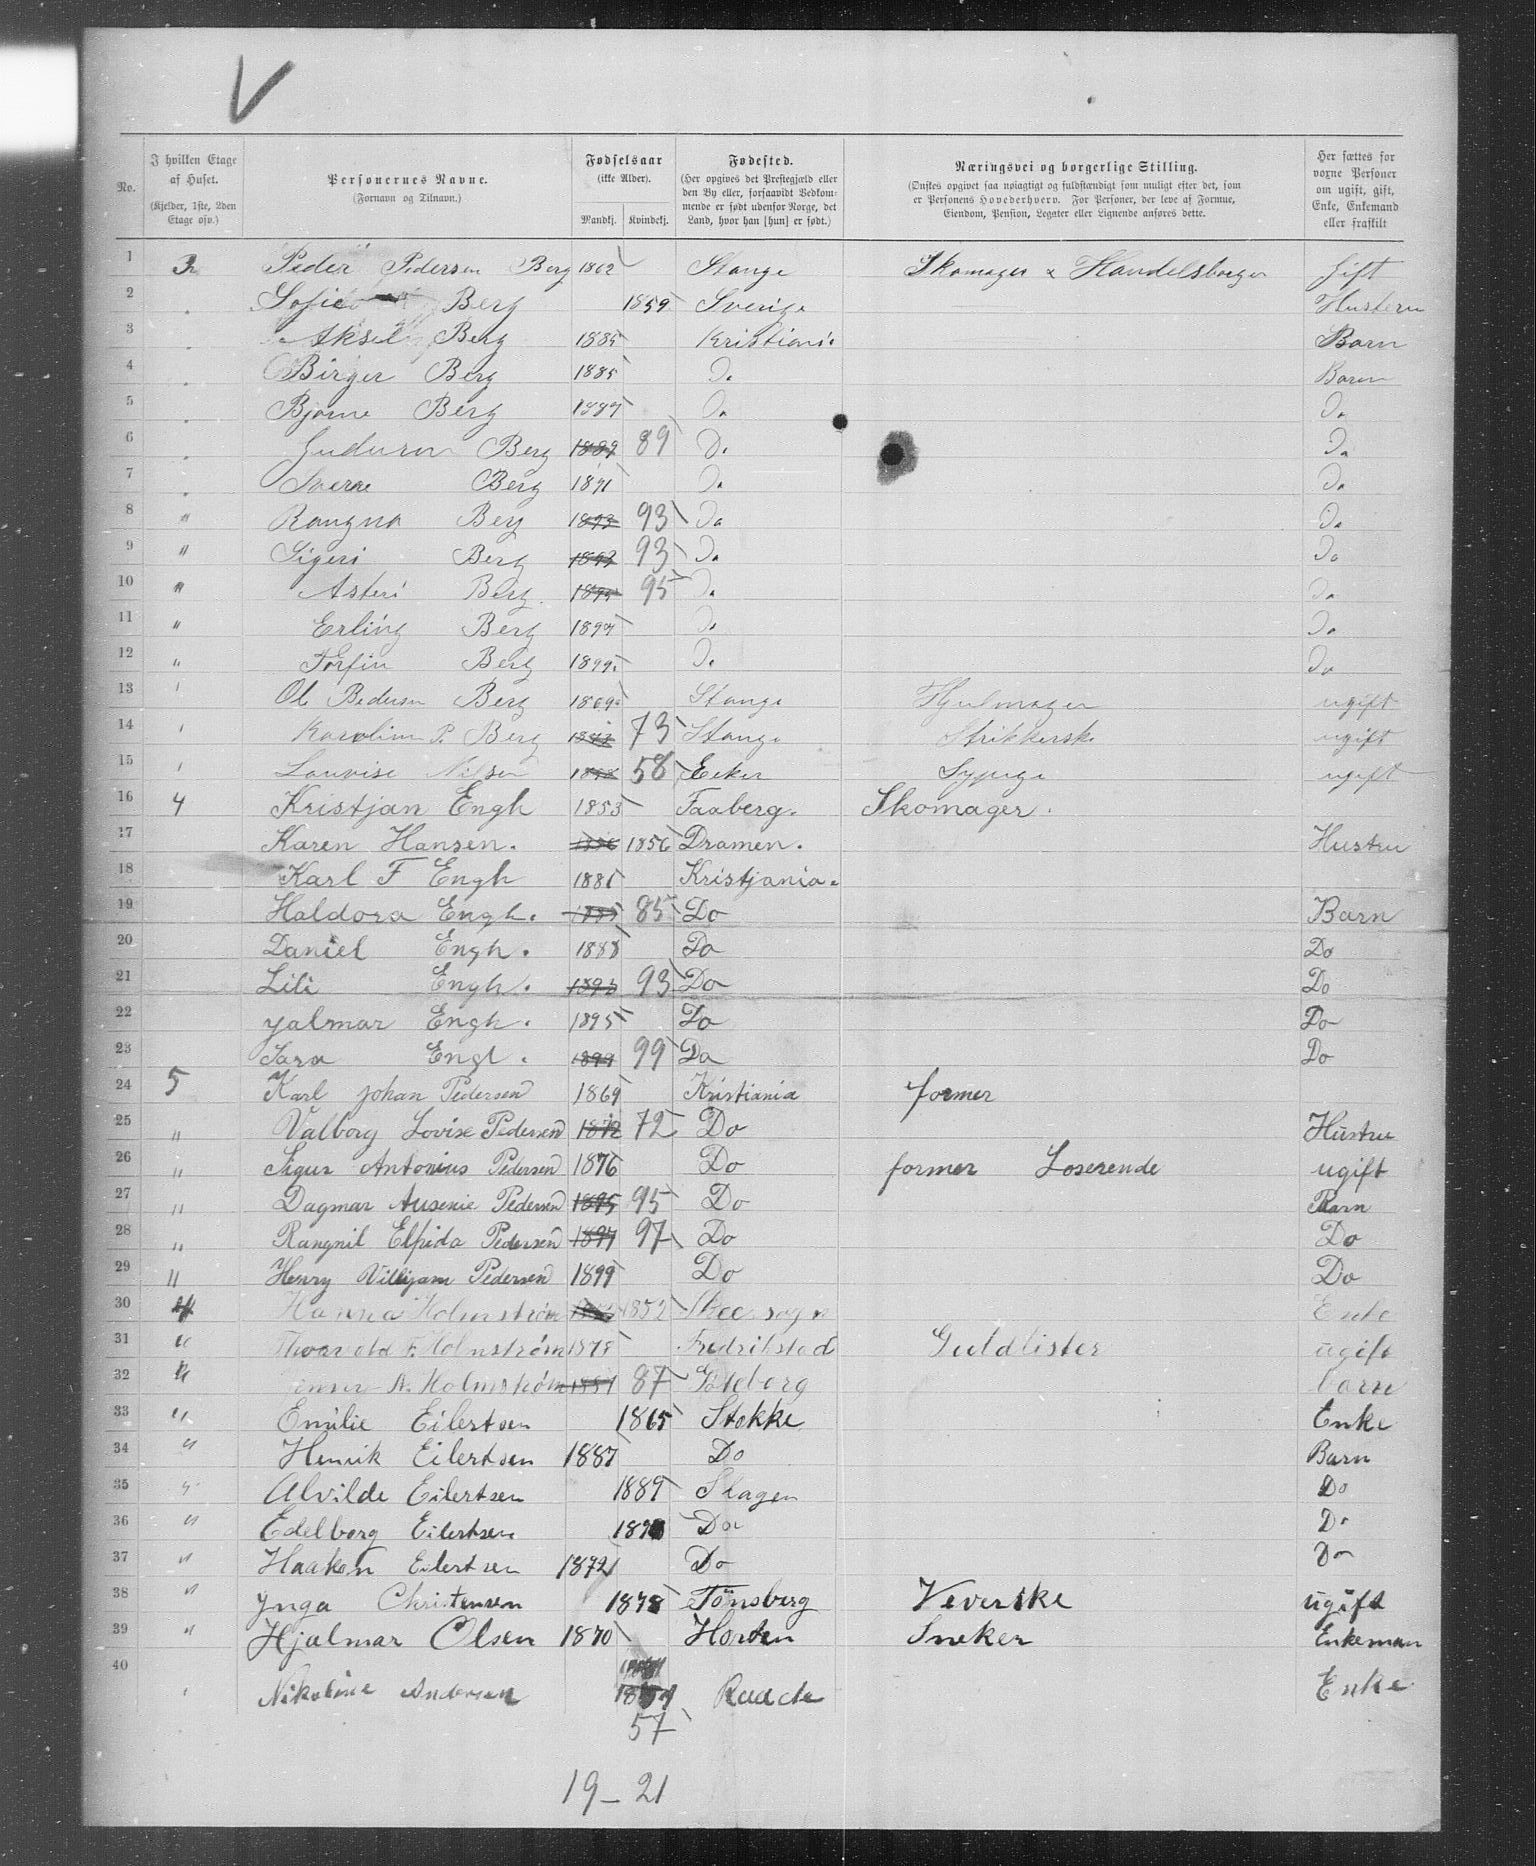 V
No. I hvilken Etage af Huset. (Kjelder, 1ste, 2den Etage osv.) Personernes Navne. (Fornavn og Tilnavn.) Fødselsaar (ikke Alder). Mandkj. Kvindekj. Fødested. (Her opgives det Præstegjæld eller den By eller, forsaavidt Vedkommende er født udenfor Norge, det Land, hvor han [hun] er født.) Næringsvei og borgerlige Stilling. (Ønskes opgivet saa nøiagtigt og fuldstændigt som muligt efter det, som er Personens Hovederhverv. For Personer, der leve af Formue, Eiendom, Pension, Legater eller Lignende anføres dette. Her sættes for voxne Personer om ugift, gift, Enke, Enkemand eller fraskilt
1 3 Peder Pedersen Berg 1862 Stange Skomager & Handelsborger Gift
2 Sofie Berg 1859 Sverige Husteru
3 Aksel Berg 1885 Kristiani. Barn
4 Birger Berg 1885 Do Baren
5 Bjarne Berg 1887 Do Do
6 Guduron Berg 1889 89 Do Do
7 Sverre Berg 1891 Do Do
8 " Rangna Berg 1893 93 Do Do
9 " Sigeri Berg 1893 93 Do Do
10 " Asteri Berg 1895 95 Do Do
11 " Erling Berg 1897 Do Do
12 " Torfin Berg 1899 Do Do
13 Ol Pedersn Berg 1869 Stange Hjulmager ugift
14 Karolin P. Berg 73 Stange Strikkersk. ugift
15 Louvise Nilsen 58 Eeker Sypige ugift
16 4 Kristjan Engh 1853 Faaberg. Skomager.
17 Karen Hansen. 1856 1856 Dramen. Hustru
18 Karl F Engh 1881 Kristjania.
19 Haldora Engh. 1885 85 Do Barn
20 Daniel Engh. 1888 Do Do
21 Lili Engh. 1893 93 Do Do
22 yalmar Engh. 1895 Do Do
23 Sara Engl. 1899 99 Do Do
24 5 Karl Johan Pedersen 1869 Kristiania former
25 " Valborg Lovise Pedersen 1872 72 Do Hustru
26 " Sigur Antonius Pedersen 1876 Do former Loserende ugift
27 " Dagmar Ausenie Pedersen 1895 95 Do Barn
28 " Rangnil Elfrida Pedersen 1897 97 Do Do
29 " Henry Villyam Pedersen 1899 Do Do
30 4 Hanna Holmstrøm 1852 Skee sogn Enke
31 " F. Holmstrøm 1878 Fredrikstad Guldlister ugift
32 " A. Holmstrøm 87 Gøteborg barn
33 " Emilie Eilertsen 1865 Stokke Enke
34 " Henrik Eilertsen 1887 Do Barn
35 " Alvilde Eilertsen 1889 Slagen Do
36 " Edelborg Eilertsen Do Do
37 " Haakon Eilertsen 1872 Do Do
38 " Ynga Christensen 1878 Tønsberg Veverske ugift
39 " Hjalmar Olsen 1870 Horten Sneker Enkeman
40 Nikoline Andersen Raade Enke
57
19-21